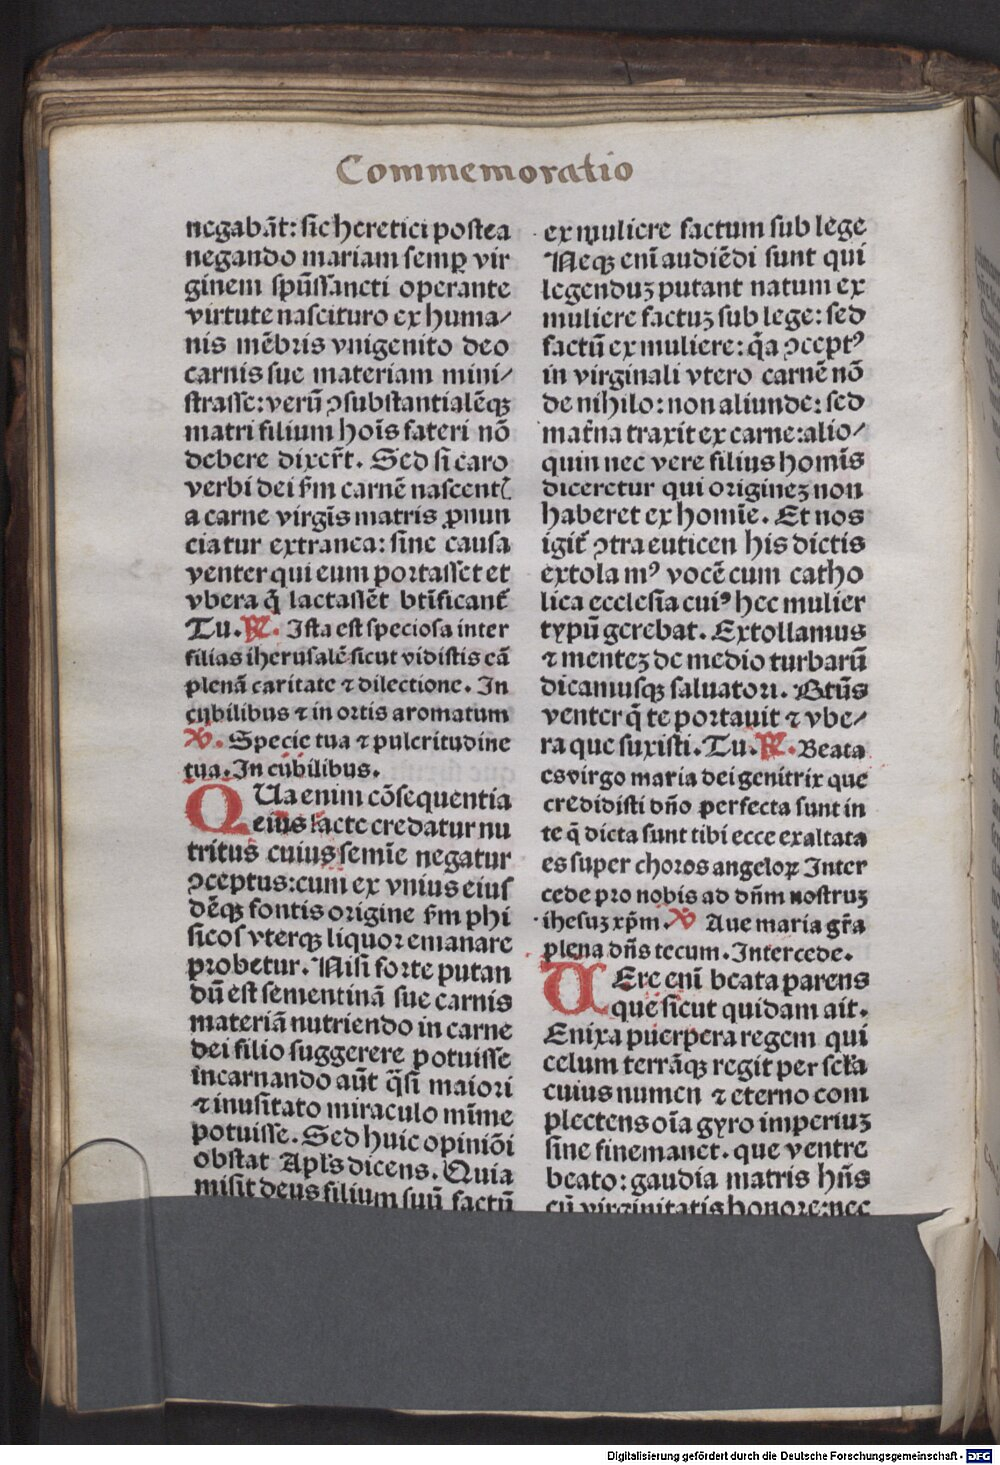 Commemoratio
negabāt: sic heretici postea
negando mariam semꝑ vir
ginem spūssancti operante
virtute nascituro ex huma/
nis mēbris vnigenito deo
carnis sue materiam mini/
strasse: verū ꝯsubstantialēqꝫ
matri filium hoīs fateri nō
debere dixer̄t. Sed si caro
verbi dei s̄m carnē nascentꝭ
a carne virgīs matris ꝓnun
ciatur extranea: sine causa
venter qui eum portasset et
vbera q̄ lactassēt btīficant᷑
Tu. ℟. Ista est speciosa inter
filias iherusalē sicut vidistis eā
plenā caritate ⁊ dilectione. In
cubilibus ⁊ in ortis aromatum
℣. Specie tua ⁊ pulcritudine
tua. In cubilibus.
QUia enim cōsequentia
eius lacte credatur nu
tritus cuius semīe negatur
ꝯceptus: cum ex vnius eius
dēqꝫ fontis origine s̄m phi
sicos vterqꝫ liquor emanare
probetur. Nisi forte putan
dū est sementinā sue carnis
materiā nutriendo in carne
dei filio suggerere potuisse
incarnando aūt q̄si maiori
⁊ inusitato miraculo mīme
potuisse. Sed huic opiniōi
obstat Apl̄s dicens. Quia
misit deus filium suū factū
ex muliere factum sub lege
Neqꝫ enī audiēdi sunt qui
legenduꝫ putant natum ex
muliere factuꝫ sub lege: sed
factū ex muliere: q̄a ꝯceptꝰ
in virginali vtero carnē nō
de nihilo: non aliunde: sed
mat̄na traxit ex carne: alio/
quin nec vere filius homīs
diceretur qui origineꝫ non
haberet ex homīe. Et nos
igit᷑ ꝯtra euticen his dictis
extolamꝰ vocē cum catho
lica ecclesia cuiꝰ hec mulier
typū gerebat. Extollamus
⁊ menteꝫ de medio turbarū
dicamusqꝫ saluatori. Btūs
venter q̄ te portauit ⁊ vbe/
ra que suxisti. Tu. ℟. Beata
es virgo maria dei genitrix que
credidisti dn̄o perfecta sunt in
te q̄ dicta sunt tibi ecce exaltata
es super choros angeloꝝ Inter
cede pro nobis ad dn̄m nostruꝫ
ihesuꝫ xp̄m. ℣ Aue maria gr̄a
plena dn̄s tecum. Intercede.
UEre enī beata parens
que sicut quidam ait.
Enixa puerpera regem qui
celum terrāqꝫ regit per scl̄a
cuius numen ⁊ eterno com
plectens oīa gyro imperiuꝫ
sine fine manet. que ventre
beato: gaudia matris hn̄s
cū virginitatis honore: nec
Digitalisierung gefördert durch die Deutsche Forschungsgemeinschaft - DFG